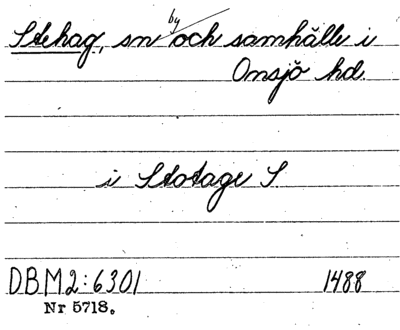 Stehag, sn by och samhälle i
Onsjö hd.
i Stotage S.
DBM2:6301 1488
Nr 5718.